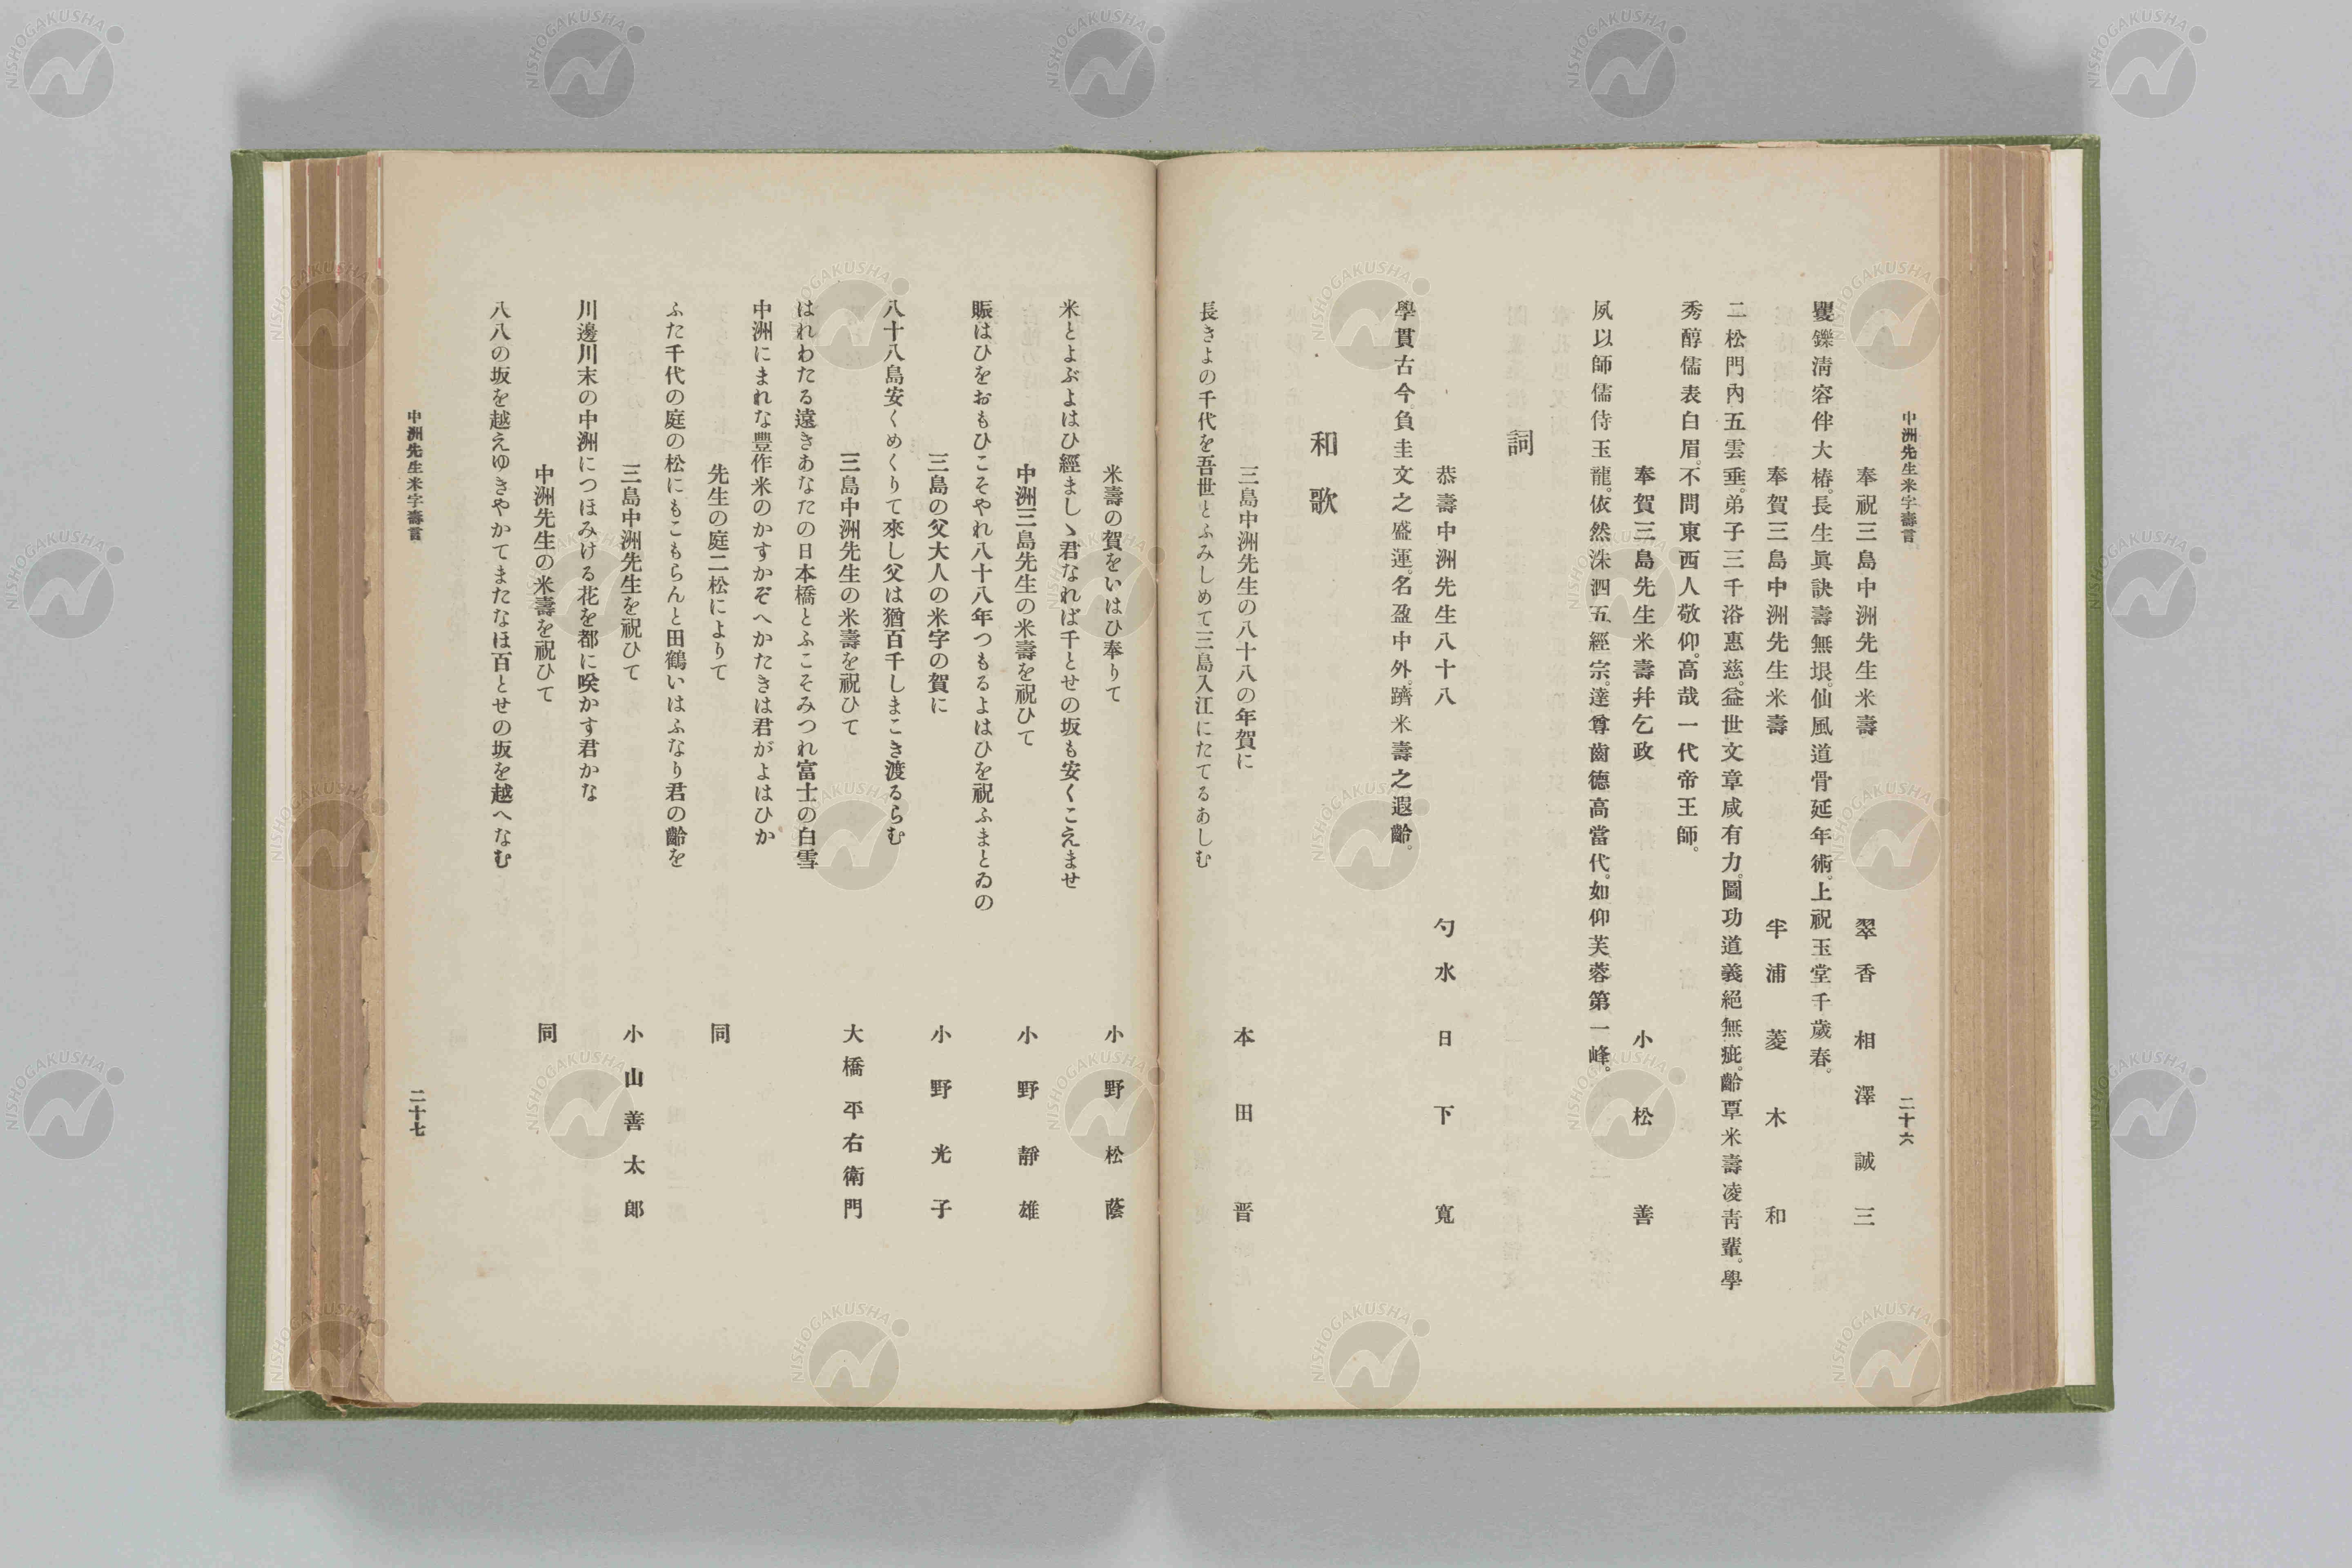 中洲先生米字壽言
二十六
奉祝三島中洲先生米壽 翠香 相澤誠三
矍鑠淸容伴大椿。長生眞訣壽無垠。仙風道骨延年術。上祝玉堂千歲春。
奉賀三島中洲先生米壽 芉浦 菱木和
二松門內五雲垂。弟子三千浴惠慈。益世文章咸有力。圖功道義絕無疵。齡覃米壽凌靑輩。學
秀醇儒表白眉。不問東西人敬仰。高哉一代帝王師。
奉賀三島先生米壽幷乞政 小松善
夙以師儒侍玉龍。依然洙泗五經宗。達尊齒德高當代。如仰芙蓉第一峰。
詞
恭壽中洲先生八十八 勺水 日下寬
學貫古今。負圭文之盛運。名盈中外。躋米壽之遐齡。
和歌
三島中洲先生の八十八の年賀に 本田晋
長きよの千代を吾世とふみしめて三島入江にたてるあしむ
米壽の賀をいはひ奉りて 小野松蔭
米とよぶよはひ經ましゝ君なれば千とせの坂も安くこえませ
中洲三島先生の米壽を祝ひて 小野靜雄
賑はひをおもひこそやれ八十八年つもるよはひを祝ふまとゐの
三島の父大人の米字の賀に 小野光子
八十八島安くめくりて來し父は猶百千しまこき渡るらむ
三島中洲先生の米壽を祝ひて 大橋平右衛門
はれわたる遠きあなたの日本橋とふこそみつれ富士の白雪
中洲にまれな豐作米のかすかぞへかたきは君がよはひか
先生の庭二松によりて 同
ふた千代の庭の松にもこもらんと田鶴いはふなり君の齡を
三島中洲先生を祝ひて 小山善太郞
川邊川末の中洲につほみける花を都に咲かす君かな
中洲先生の米壽を祝ひて 同
八八の坂を越えゆきやかてまたなほ百とせの坂を越へなむ
中洲先生米字壽言
二十七